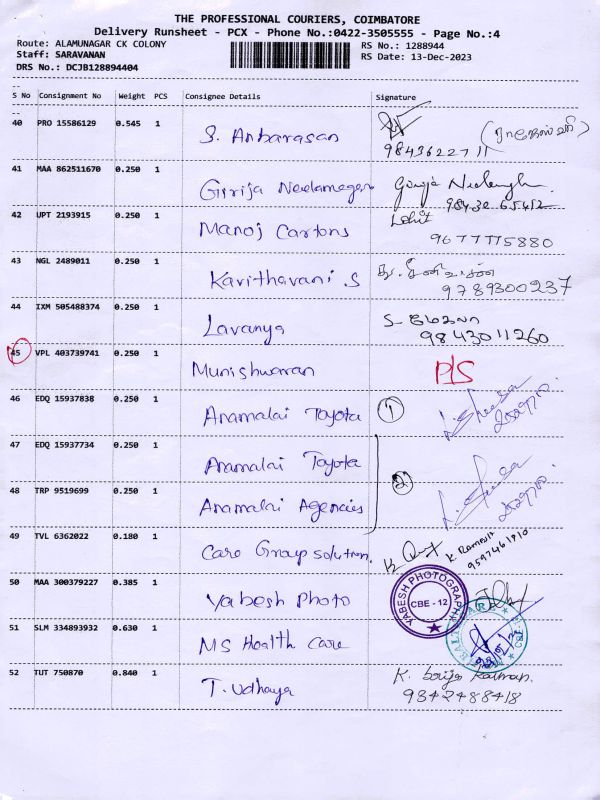 THE PROFESSIONAL COURIERS, COIMBATORE
Delivery Runsheet - PCX - Phone No.:0422-3505555 - Page No.:4
Route: ALAMUNAGAR CK COLONY RS No.: 1288944
Staff: SARAVANAN RS Date: 13-Dec-2023
DRS No.: DCJB128894404
S No Consignment No Weight PCS Consignee Details Signature
40 PRO 15586129 0.545 1 S. Anbarasan
9843622711
41 MAA 862511670 0.250 1 Girija Needamegam
98432 65412
42 UPT 2193915 0.250 1 Manoj Cartons Lohit
9677775880
43 NGL 2489011 0.250 1 Kavithavani S
9789300237
44 IXM 505488374 0.250 1 Lavanya
9843011260
45 VPL 403739741 0.250 1 Munishwaran P/S
46 EDQ 15937838 0.250 1 Anamalai Toyota 1
47 EDQ 15937734 0.250 1 Anamalai Toyota
48 TRP 9519699 0.250 1 Anamalai Agencies 2
49 TVL 6362022 0.180 1 Care Group solution. K Ramesh
9597461910
50 MAA 300379227 0.385 1 Yabesh Photo YABESH PHOTOGRAPHY CBE - 12
51 SLM 334893932 0.630 1 MS Health Care
52 TUT 750870 0.840 1 T. Udhaya
9342488418